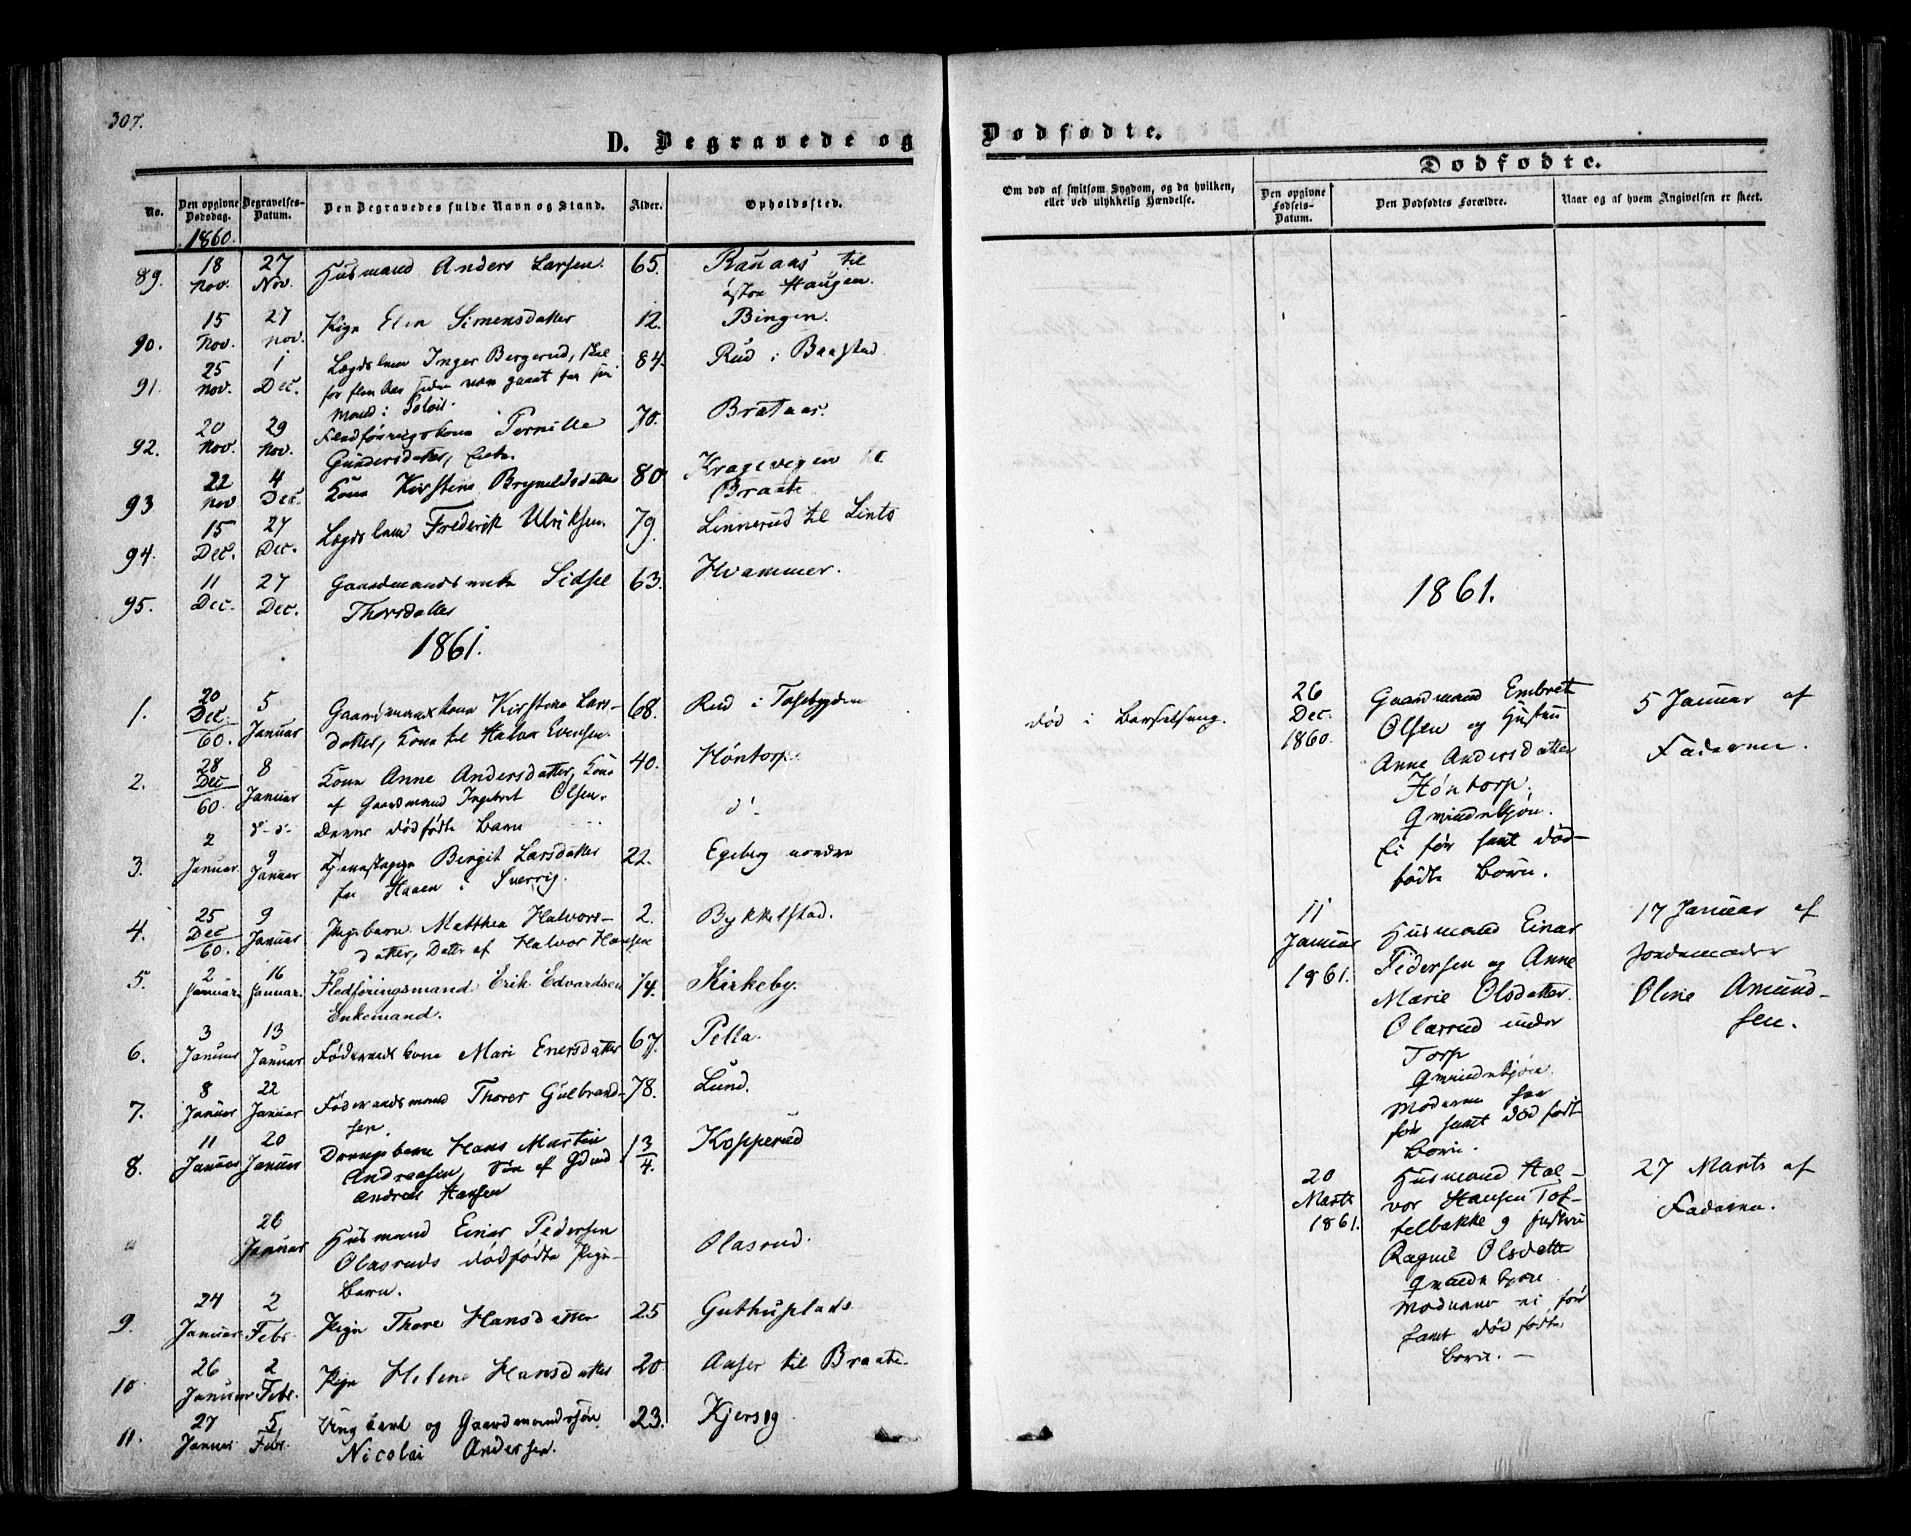 307.
D. Begravede og
No.
Den opgivne Dødsdag.
Begravelses-Datum.
Den Begravedes fulde Navn og Stand.
Alder.
Opholdssted.
1860.
89. 18 Nov. 27 Nov. Husmand Anders Larsen. 65. Ranaas til
østre Haugen.
90. 15 Nov. 27 Nov. Pige Elen Simensdatter 12. Bingen.
91. 25 Nov. 1 Dec. Lægdslem Inger Bergerud, 84. Rud i Baastad
for flere Aar siden
Mand i
92. 20 Nov. 29 Nov. Fledføringskone Pernille 70. Brataas.
Gundersdatter, Enke.
93 22 Nov 4 Dec. Kone Kirstine Bryneldsdatter 80 Kragevegen
Braate
94. 15 Dec. 27 Dec. Lægdslem Frederik Ulriksen. 79. Linnerud til Linto
95. 11 Dec. 27 Dec. Gaardmandsenke Sidsel 63. Hvammer.
Thorsdatter
1861.
1. 20 Dec. 60. 5 Januar Gaardmandskone Kirstine Lars- 68. Rud i Tosebygden
datter, Kone til Halvor Evensen.
2. 28 Dec 60. 8 Januar Kone Anne Andersdatter, Kone 40. Høntorp
af Gaardmand Ingebret Olsen.
d-o- Dennes dødfødte Barn d-
3. 2 Januar 9 Januar Tjenestepige Birgit Larsdatter 22. Egeberg nordre
fra i Sverrig.
4. 25 Dec 60. 9 Januar Pigebarn Matthea Halvors- 2. Bykkelstad.
datter, Datter af Halvor Hansen
5. 2 Januar. 16 Januar. Fledføringsmand Erik Edvardsen 74. Kirkeby.
Enkemand.
6. 3 Januar 13 Januar Føderaadskone Mari Enersdatter 67. Pella.
7. 8 Januar 22 Januar Føderaadsmand Thorer Gulbrand- 78. Lund.
sen.
8. 11 Januar 20 Januar Drengebarn Hans Martin 1 3/4. Kopperud
Andreasen, Søn af Gdmd
Andreas Hansen
26 Januar Husmand Einar Pedersen Olasrud.
Olasruds dødfødte Pige-
barn.
9. 24 Januar 2 Febr. Pige Thore Hansdatter 25 Guthusplads
10 26 Januar 2 Febr. Pige Helene Hansdatter 20 Aaser til Braate.
11. 27 Januar 5 Febr. Ungkarl og Gaardmandssøn 23. Kjersøg
Nicolai Andersen.
Dødfødte.
Om død af smitsom Sygdom, og da hvilken,
eller ved ulykkelig Hændelse.
Dødfødte.
Den opgivne Fødsels-Datum.
Den Dødfødtes Forældre.
Naar og af hvem Angivelsen er skeet.
1861.
død i Barselseng.
26 Dec. 1860. Gaardmand Embret 5 Januar af
Olsen og Hustru Faderen.
Anne Andersdatter
Høntorp.
Qvindekjøn.
Ei før havt død-
fødte Børn.
11 Januar 1861. Husmand Einar 17 Januar af
Pedersen og Anne Jordemoder
Marie Olsdatter. Oline Amund-
Olasrud under sen.
Torp
Qvindekjøn.
Moderen har
før havt dødfødt
Børn.
20 Marts 1861. Husmand Hal- 27 Marts af
vor Hansen Tof- Faderen.
telbakke og Hustru
Ragnil Olsdatter
Qvindekjøn.
Moderen ei før
havt dødfødte
børn. —